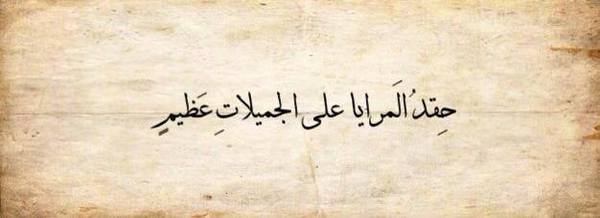 حِقدُ المَرايا على الجميلاتِ عَظيمٍ